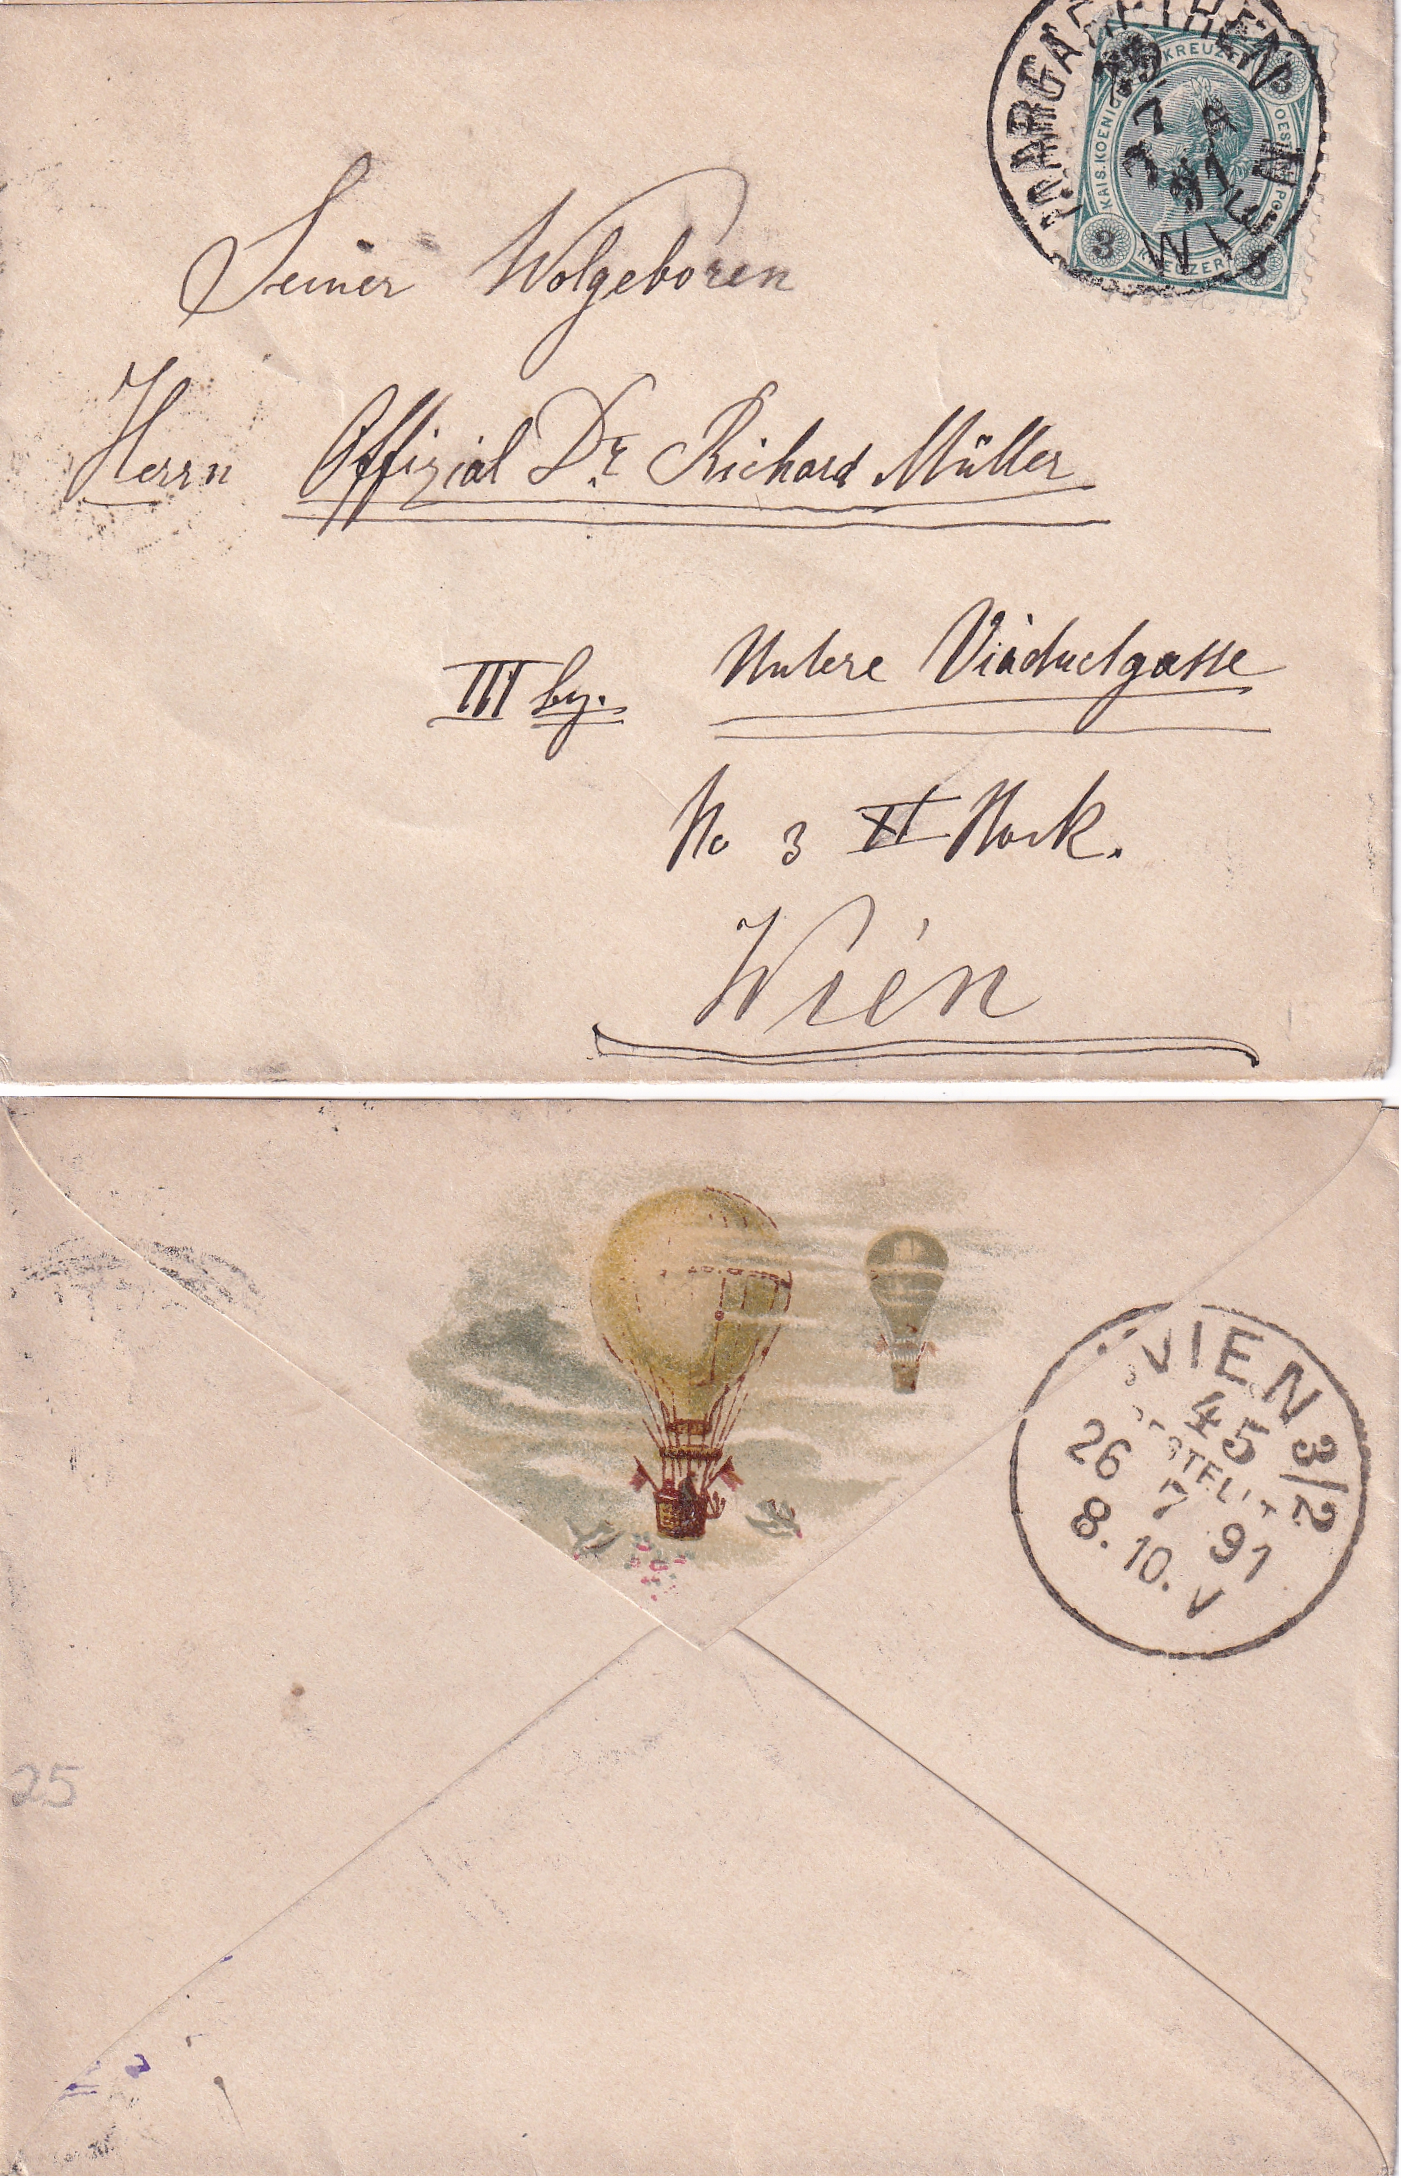 MARGARETHEN
WIEN
7
91
KREUZER
KAIS. KOENIGL
OESTERR. POST
3
3
3
KREUZER
Seiner Wolgeboren
Herrn Offizial Dr. Richard Müller
III bz. Untere Viaductgasse
No 3 II Stock.
Wien
WIEN 3/2
45
BESTELLT
26 7 91
8. 10. V
25